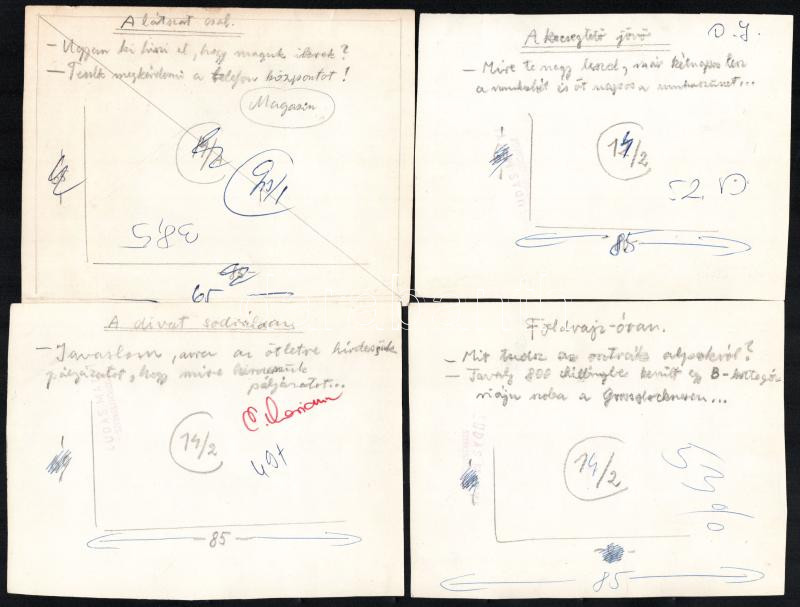 A látszat csal.
- Ugyan ki hiszi el, hogy maguk ikrek?
- Tessék megkérdezni a telefon központot!
Magazin
14/2
38,5
65
A kecsegtető jövő
D. J.
- Mire te nagy leszel, már kétnapos lesz
a munkahét és öt napos a munkaszünet...
14/2
52
85
A divat sodrában.
- Javaslom, arra az ötletre hirdessünk
pályázatot, hogy mire hirdessünk
pályázatot...
LUDAS
14/2
497
- 85 -
Földrajz-órán.
- Mit tudsz az osztrák alpokról?
- Tavaly 800 schillingbe került egy B-kategó-
riáju szoba a Grossglockneren...
14/2
- 85 -